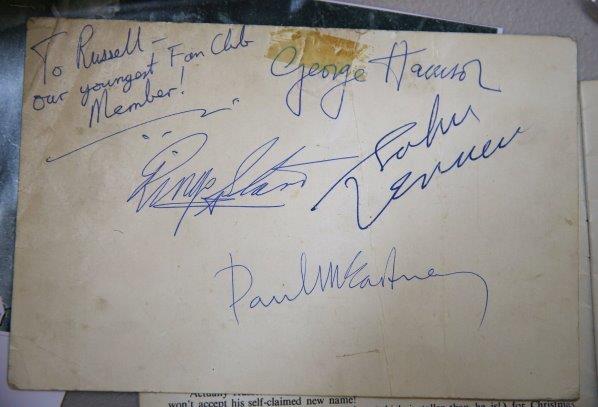 To Russell –
our youngest Fan Club
Member!
George Harrison
Ringo Starr
John
Lennon
Paul McCartney
Actually
won't accept his self-claimed new name!
he is!) for Christmas